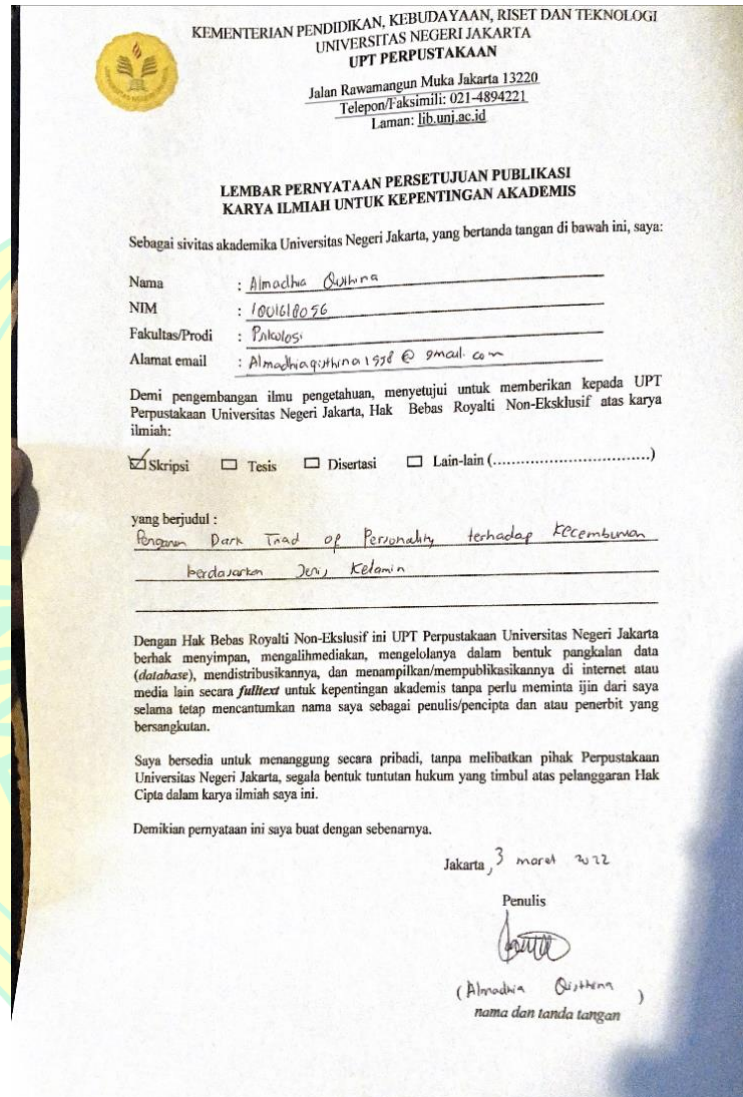 KEMENTERIAN PENDIDIKAN, KEBUDAYAAN, RISET DAN TEKNOLOGI
UNIVERSITAS NEGERI JAKARTA
UPT PERPUSTAKAAN
Jalan Rawamangun Muka Jakarta 13220
Telepon/Faksimili: 021-4894221
Laman: lib.unj.ac.id
LEMBAR PERNYATAAN PERSETUJUAN PUBLIKASI
KARYA ILMIAH UNTUK KEPENTINGAN AKADEMIS
Sebagai sivitas akademika Universitas Negeri Jakarta, yang bertanda tangan di bawah ini, saya:
Nama : Almadhia Qisthina
NIM : 1001618056
Fakultas/Prodi : Psikologi
Alamat email : Almadhiaqisthina1998@gmail.com
Demi pengembangan ilmu pengetahuan, menyetujui untuk memberikan kepada UPT
Perpustakaan Universitas Negeri Jakarta, Hak Bebas Royalti Non-Eksklusif atas karya
ilmiah:
☑ Skripsi ☐ Tesis ☐ Disertasi ☐ Lain-lain (................................)
yang berjudul :
Pengaruh Dark Triad of Personality terhadap Kecemburuan
berdasarkan Jenis Kelamin
Dengan Hak Bebas Royalti Non-Ekslusif ini UPT Perpustakaan Universitas Negeri Jakarta
berhak menyimpan, mengalihmediakan, mengelolanya dalam bentuk pangkalan data
(database), mendistribusikannya, dan menampilkan/mempublikasikannya di internet atau
media lain secara fulltext untuk kepentingan akademis tanpa perlu meminta ijin dari saya
selama tetap mencantumkan nama saya sebagai penulis/pencipta dan atau penerbit yang
bersangkutan.
Saya bersedia untuk menanggung secara pribadi, tanpa melibatkan pihak Perpustakaan
Universitas Negeri Jakarta, segala bentuk tuntutan hukum yang timbul atas pelanggaran Hak
Cipta dalam karya ilmiah saya ini.
Demikian pernyataan ini saya buat dengan sebenarnya.
Jakarta, 3 maret 2022
Penulis
(Almadhia Qisthina)
nama dan tanda tangan